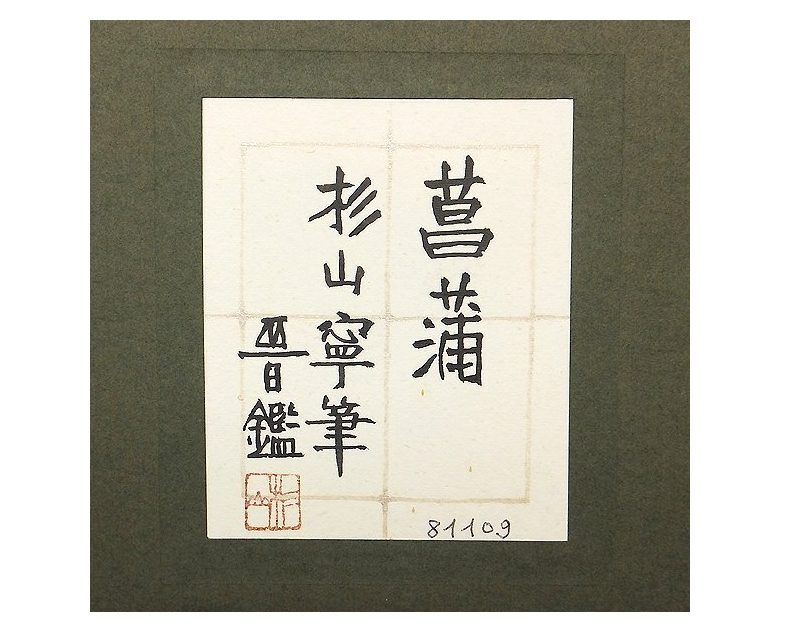 菖蒲
杉山寧筆
晋鑑
81109